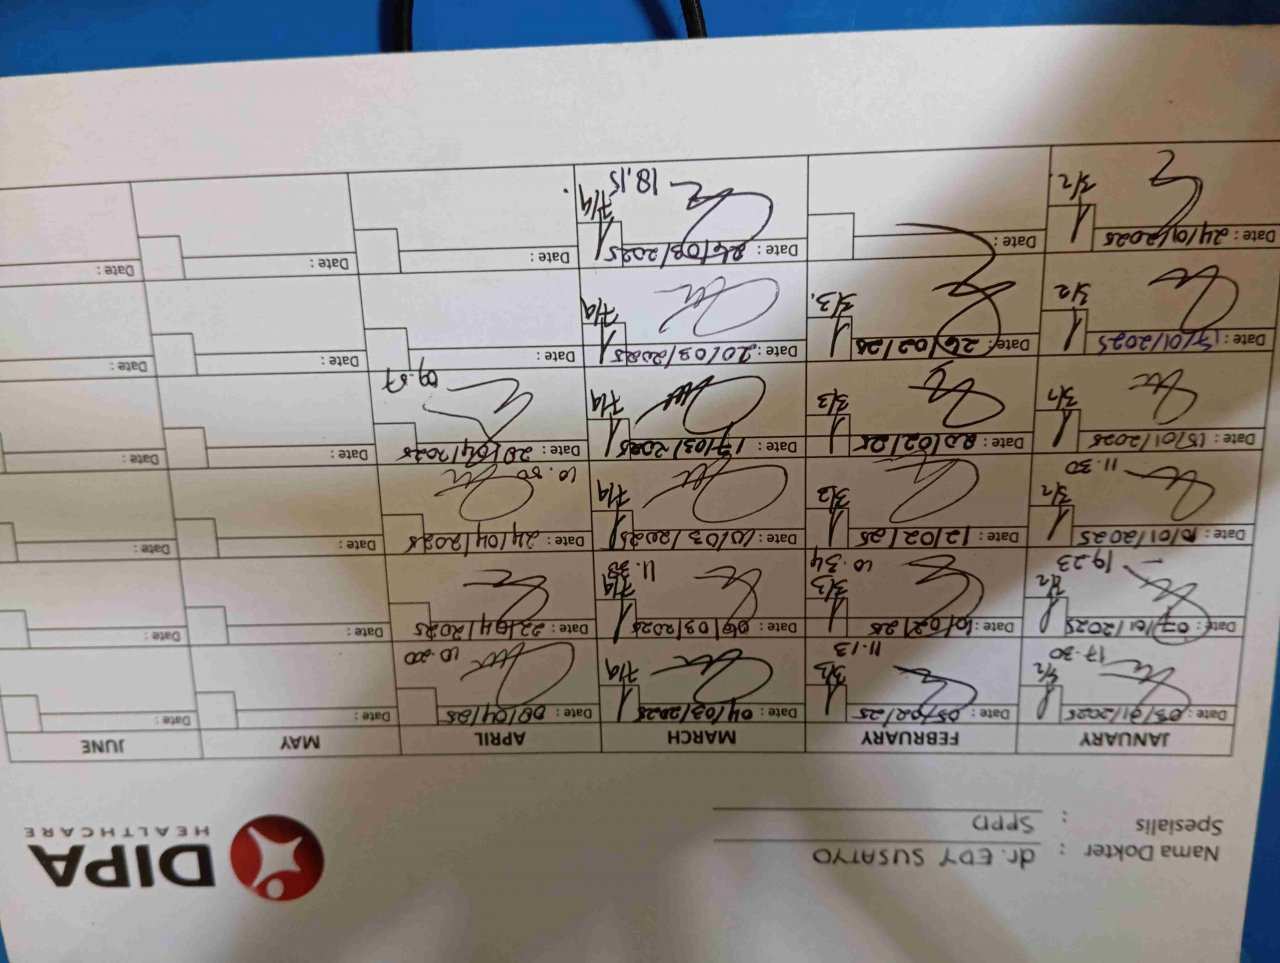 Nama Dokter : dr. EDY SUSATYO
Spesialis : SPPD
DIPA
HEALTHCARE
JANUARY FEBRUARY MARCH APRIL MAY JUNE
Date: 03/01/2025 Date: 05/02/25 Date: 04/03/2025 Date: 08/04/25 Date: Date:
17.30 11.13 3/3 7/4
Date: 07/01/2025 Date: 10/02/25 Date: 06/03/2025 Date: 22/04/2025 Date: Date:
19.23 3/3 10.34 7/4
Date: 10/01/2025 Date: 12/02/25 Date: 10/03/2025 Date: 24/04/2025 Date: Date:
11.30 3/2 3/3 7/4
Date: 15/01/2025 Date: 20/02/25 Date: 17/03/2025 Date: 28/04/2025 Date: Date:
3/2 3/3 7/4 09.57
Date: 17/01/2025 Date: 26/02/25 Date: 20/03/2025 Date: Date: Date:
3/2 3/3 7/4
Date: 24/01/2025 Date: Date: 26/03/2025 Date: Date: Date:
3/2 7/4 18.15